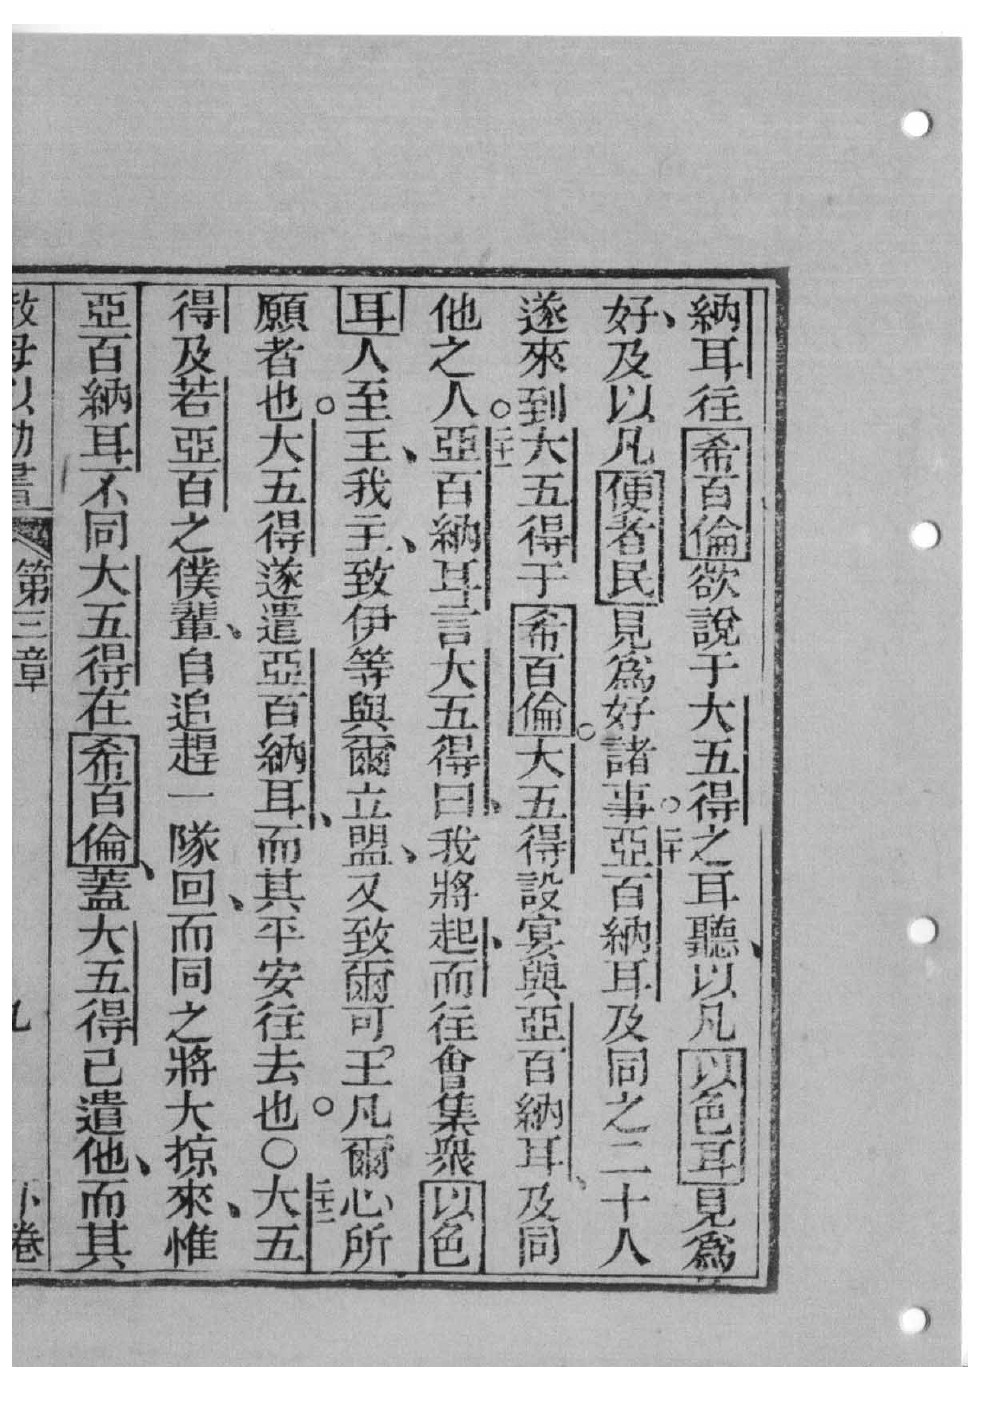 納耳往希百倫欲說于大五得之耳聽、以凡以色耳見爲
好、及以凡便者民見爲好諸事。二十亞百納耳及同之二十人
遂來到大五得于希百倫。大五得設宴與亞百納耳、及同
他之人。二十一亞百納耳言大五得曰、我將起、而往會集衆以色
耳人至王、我主、致伊等與爾立盟、又致爾可王凡爾心所
願者也。大五得遂遣亞百納耳、而其平安往去也。○二十二大五
得及若亞百之僕輩、自追趕一隊回、而同之將大掠來、惟
亞百納耳不同大五得在希百倫、蓋大五得已遣他、而其
第三章 下卷